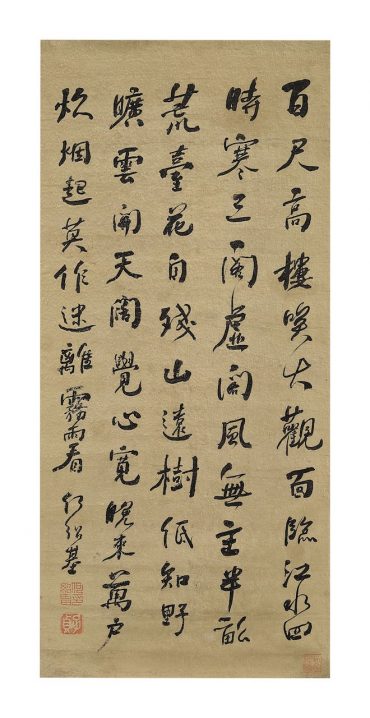 百尺高樓咲大觀面臨江水四
時寒三閣虛風無主半畝
荒臺花自殘山遠樹低知野
曠雲開天闊覺心寬晚來萬戶
炊烟起莫作迷離霧雨看 何紹基